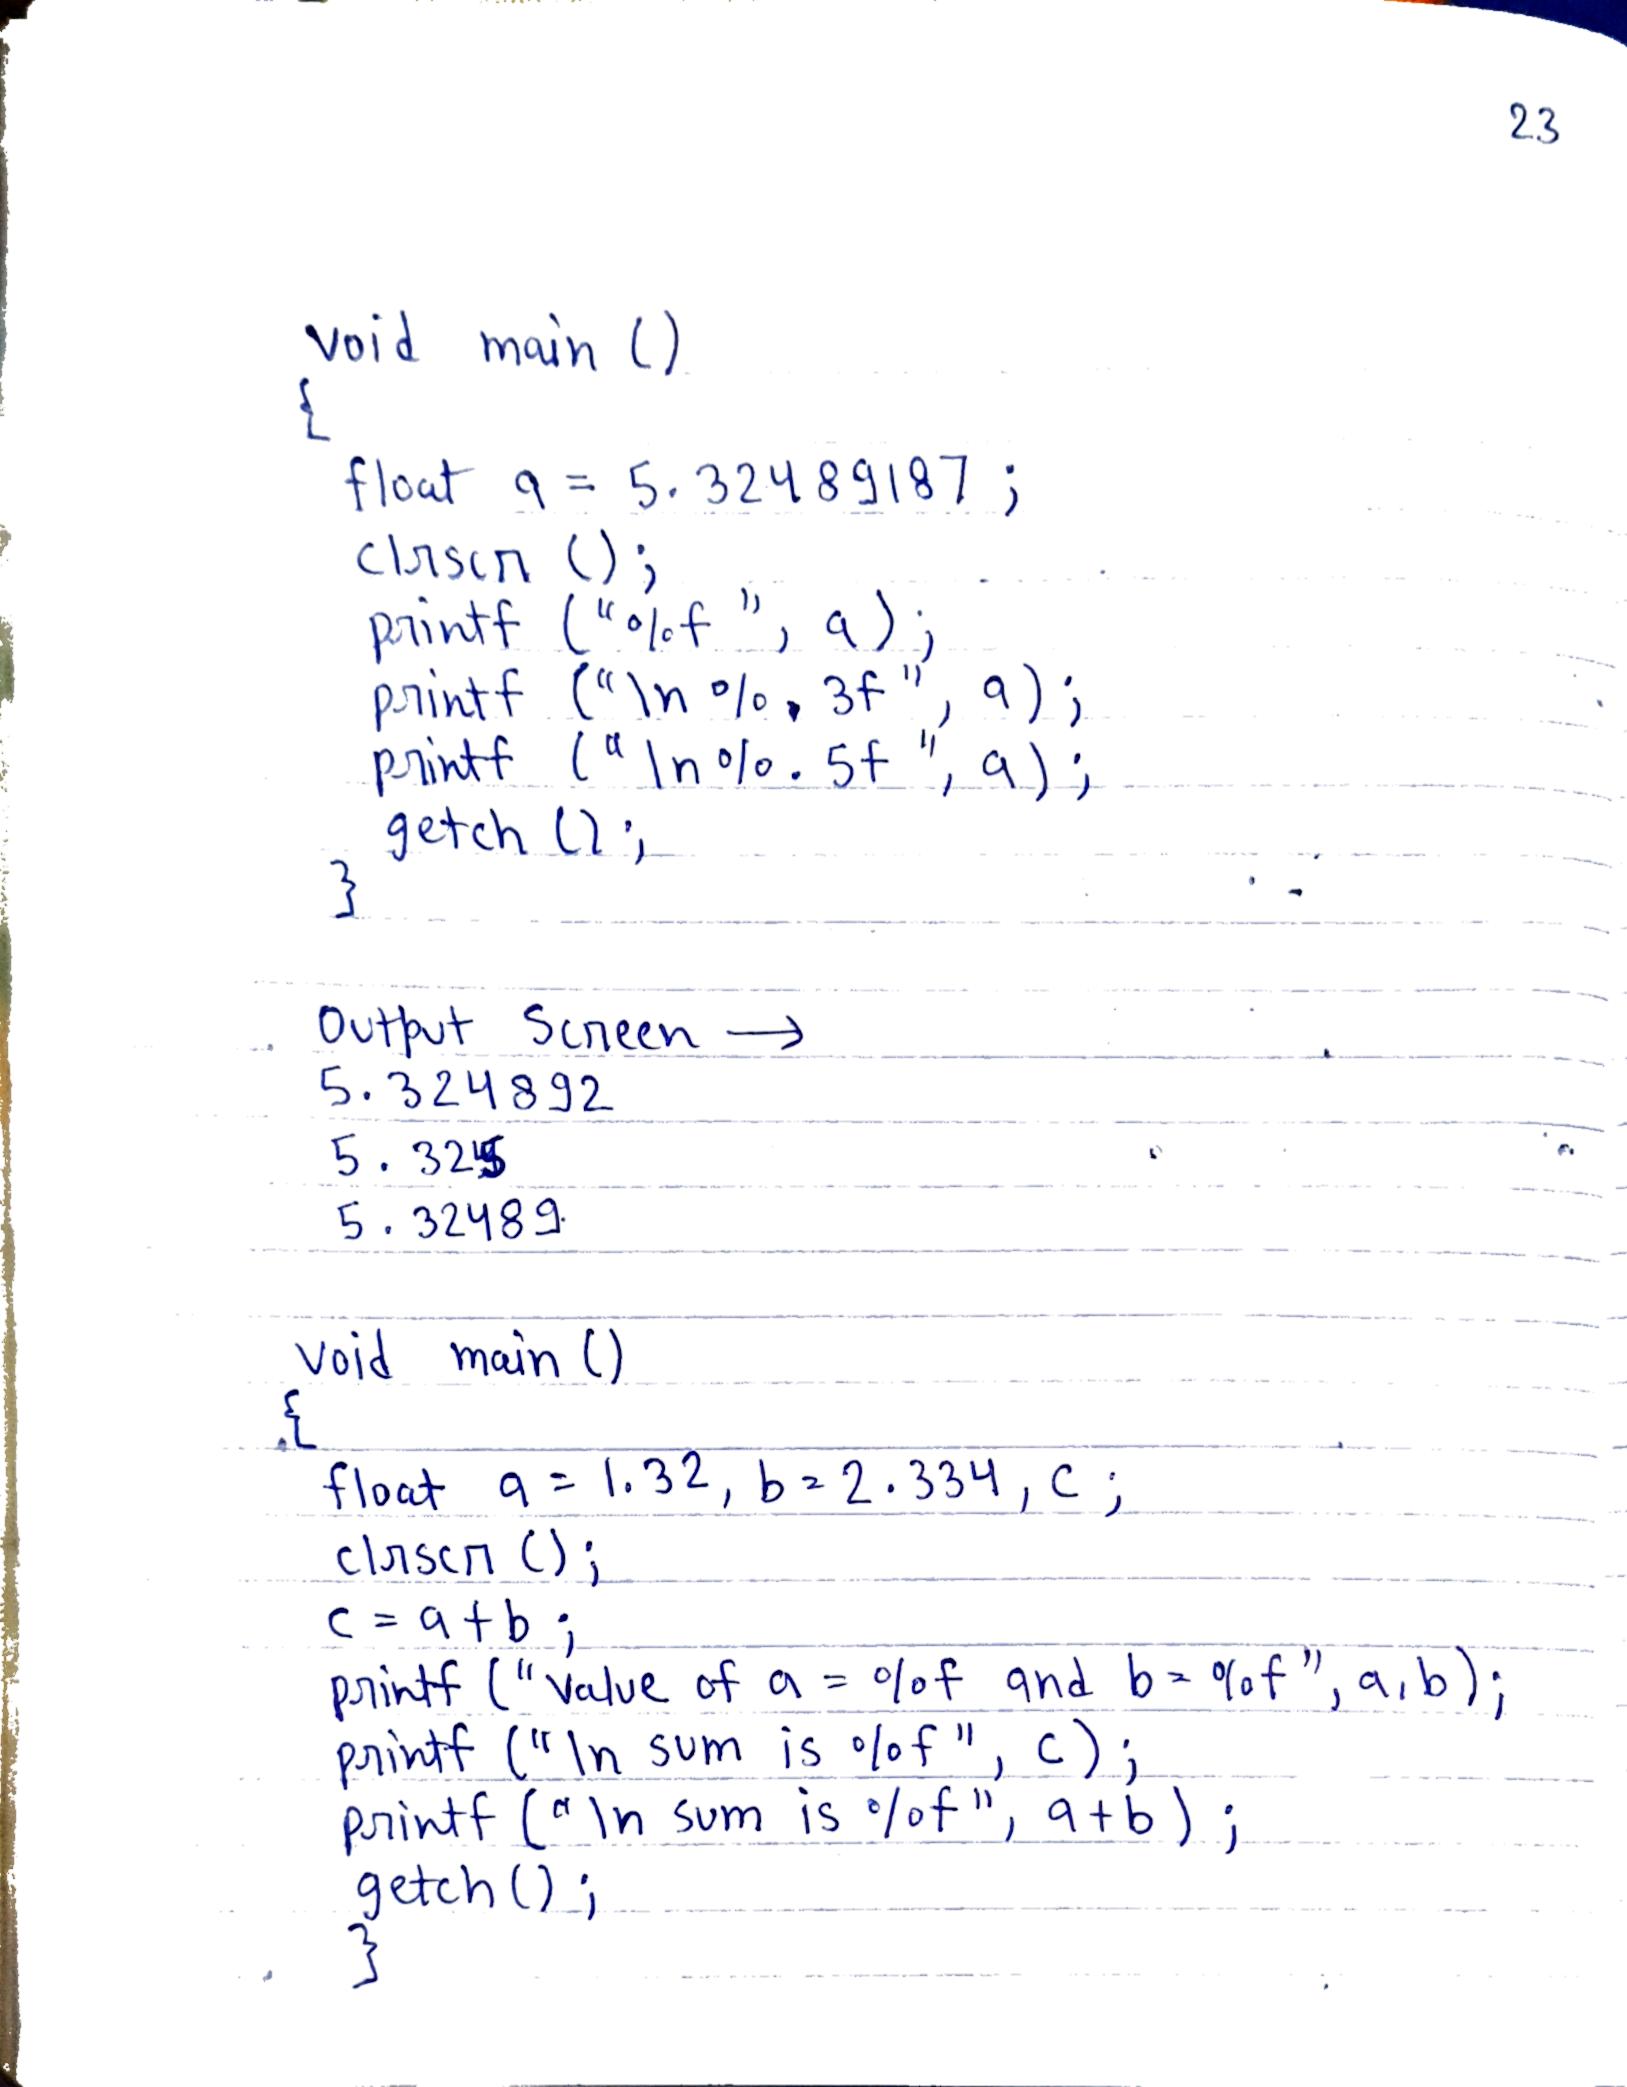 23
void main ()
{
float a = 5.32489187 ;
clrscr () ;
printf ("%f ", a) ;
printf ("\n %. 3f ", a) ;
printf ("\n %. 5f ", a) ;
getch () ;
}
Output Screen →
5.324892
5.325
5.32489
void main ()
{
float a = 1.32, b = 2.334, c ;
clrscr () ;
c = a + b ;
printf ("value of a = %f and b = %f ", a, b) ;
printf ("\n sum is %f ", c) ;
printf ("\n sum is %f ", a + b) ;
getch () ;
}